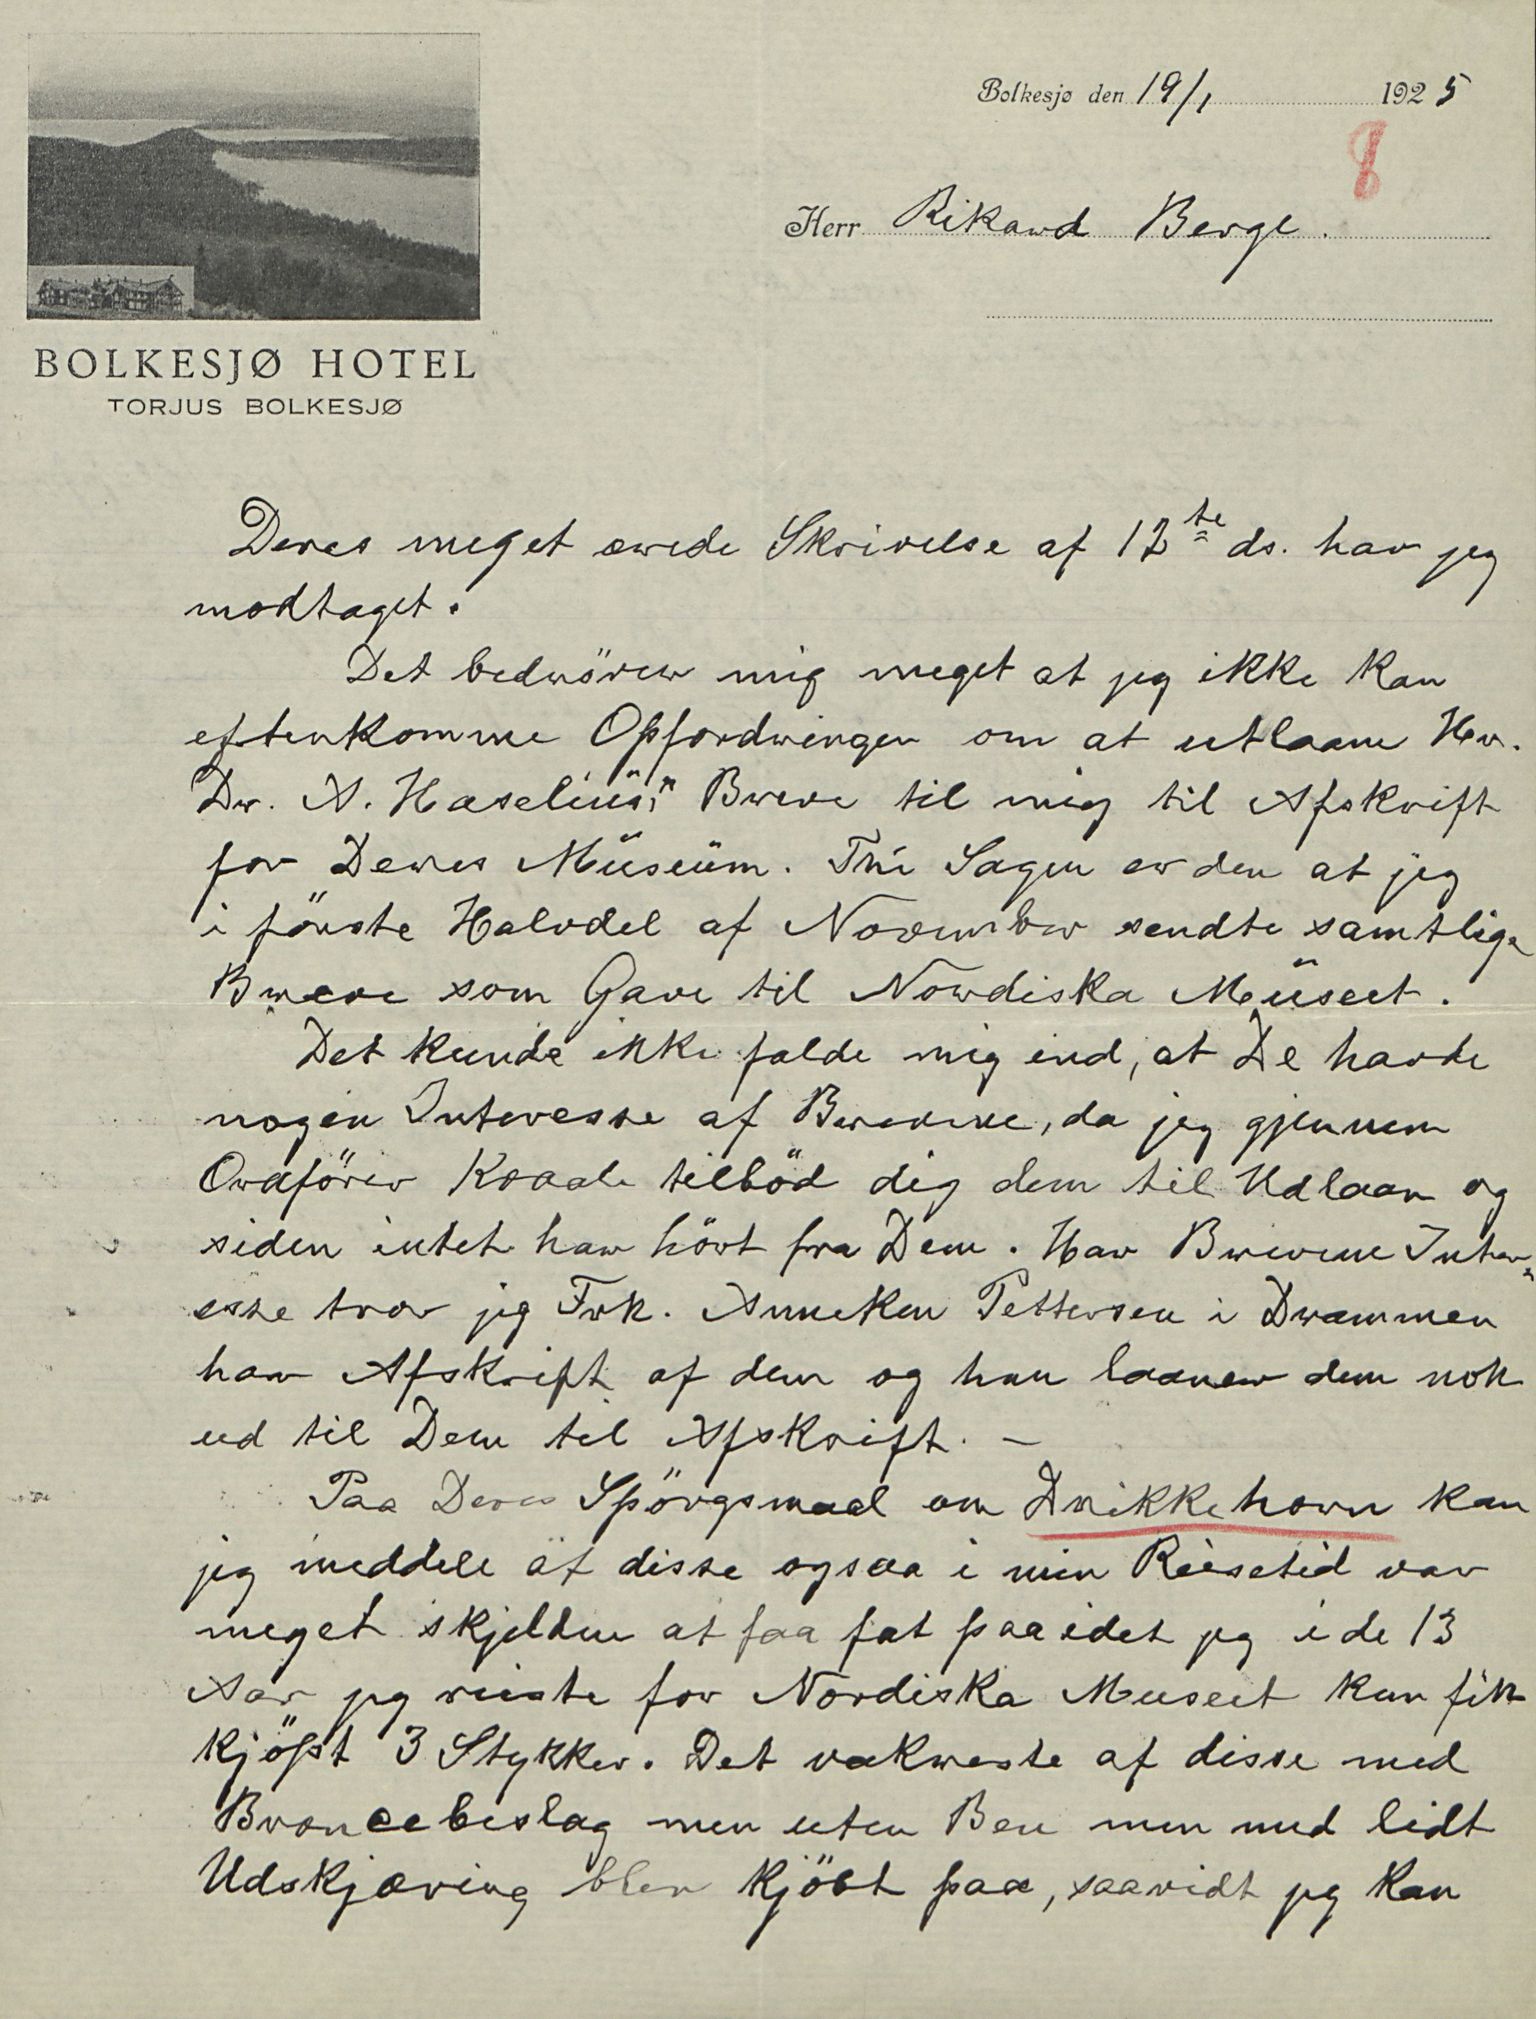 Bolkesjø den 19/1 1925
8
Herr Rikard Berge.
BOLKESJØ HOTEL
TORJUS BOLKESJØ
Deres meget ærede Skrivelse af 12te ds. har jeg
modtaget.
Det bedrörer mig meget at jeg ikke kan
efterkomme Opfordringen om at utlaane Hr.
Dr. A. Haselius's Breve til mig til Afskrift
for Deres Müseüm. Thi Sagen er den at jeg
i förste Halvdel af November sendte samtlige
Breve som Gave til Nordiska Müseet.
Det kunde ikke falde mig ind, at De havde
nogen Interesse af Brevene, da jeg gjennem
Ordförer Kraale tilböd dig dem til Udlaan og
siden intet har hört fra Dem. Har Brevene Inter-
esse tror jeg Frk. Anneken Pettersen i Drammen
har Afskrift af dem og hun laaner dem nok
ud til Dem til Afskrift. –
Paa Deres Spörgsmaal om Drikkehorn kan
jeg meddele at disse ogsaa i min Reisetid var
meget skjelden at faa fat paa idet jeg i de 13
Aar jeg reiste for Nordiska Museet kun fik
kjöpt 3 Stykker. Det vakreste af disse med
Broncebeslag men uten Ben men med lidt
Udskjæring blev kjöbt paa, saavidt jeg kan